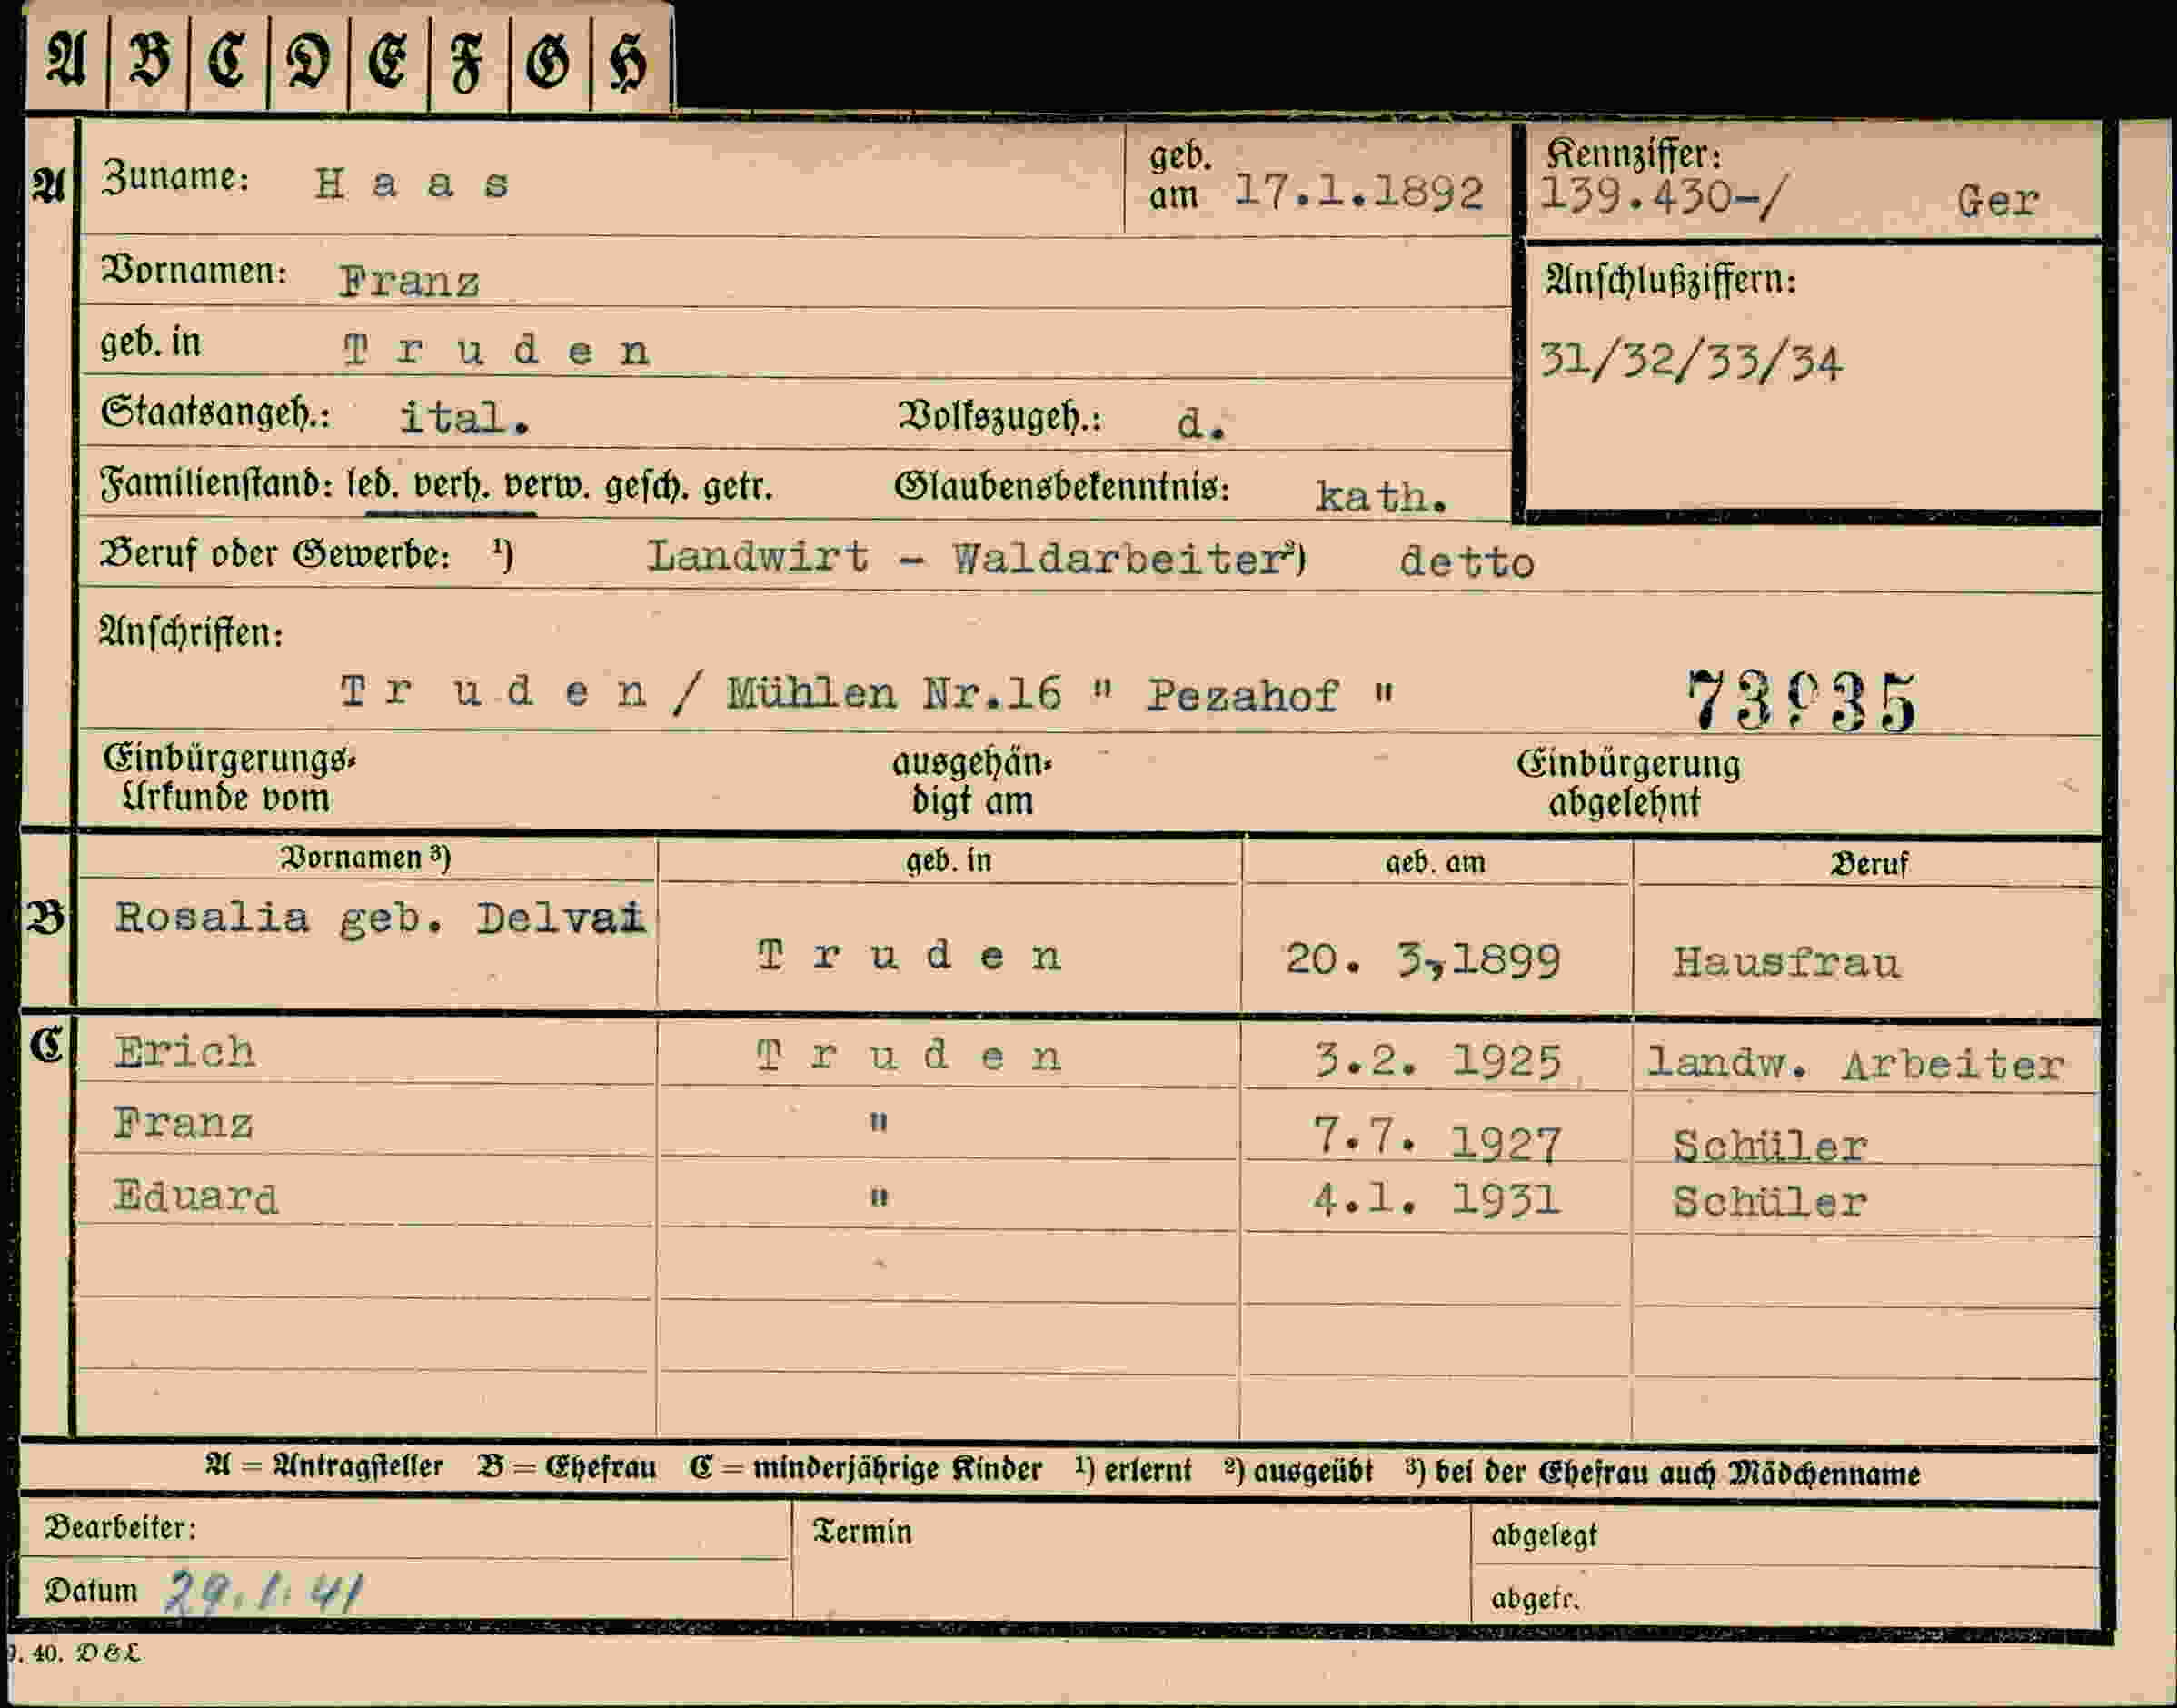 A B C D E F G H
A Zuname: H a a s geb. am 17.1.1892 Kennziffer: 139.430-/ Ger
Vornamen: Franz Anschlußziffern:
geb. in T r u d e n 31/32/33/34
Staatsangeh.: ital. Volkszugeh.: d.
Familienstand: led. verh. verw. gesch. getr. Glaubensbekenntnis: kath.
Beruf oder Gewerbe: ¹) Landwirt - Waldarbeiter ²) detto
Anschriften:
T r u d e n / Mühlen Nr.16 " Pezahof "
Einbürgerungs- ausgehän- Einbürgerung
Urkunde vom digt am abgelehnt
Vornamen ³) geb. in geb. am Beruf
B Rosalia geb. Delvai
T r u d e n 20. 3,1899 Hausfrau
C Erich T r u d e n 3.2. 1925 landw. Arbeiter
Franz " 7.7. 1927 Schüler
Eduard " 4.1. 1931 Schüler
A = Antragsteller B = Ehefrau C = minderjährige Kinder ¹) erlernt ²) ausgeübt ³) bei der Ehefrau auch Mädchenname
Bearbeiter: Termin abgelegt
Datum 29.1.41 abgetr.
40. D&L